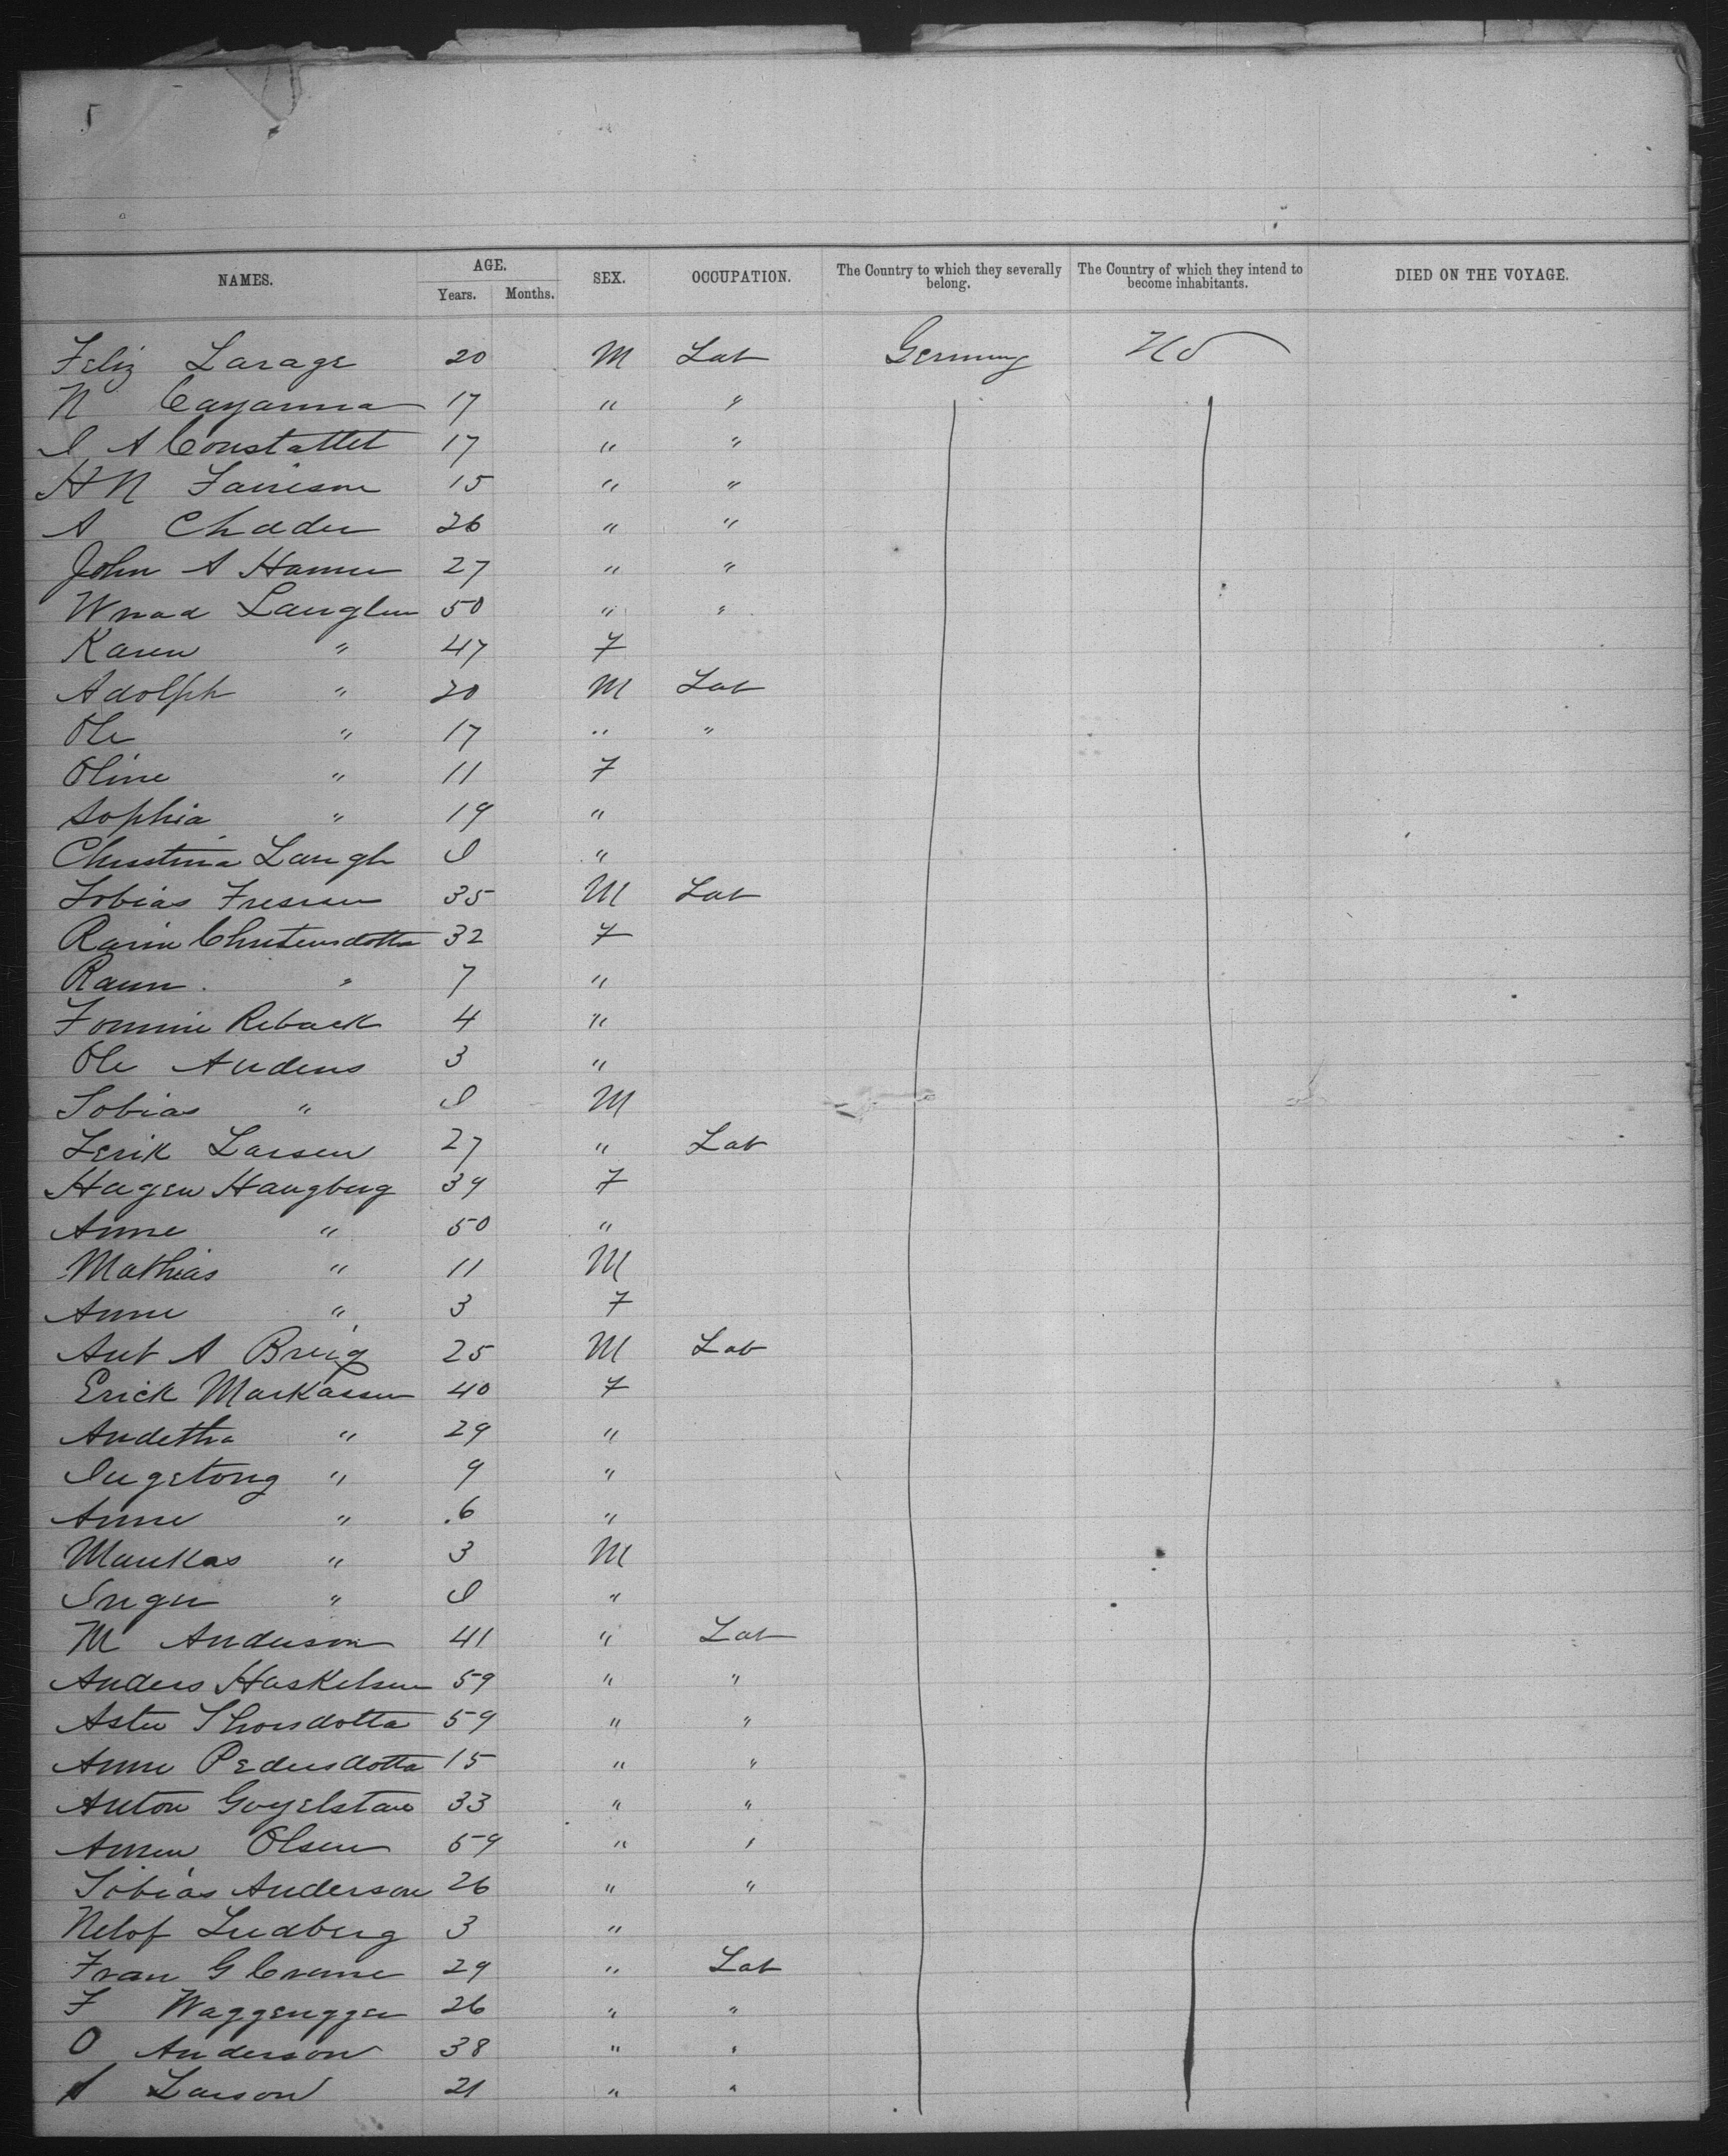 5
NAMES. AGE. SEX. OCCUPATION. The Country to which they severally belong. The Country of which they intend to become inhabitants. DIED ON THE VOYAGE.
Years. Months.
Feliz Larage 20 M Lab Germany US
N Cayanna 17 " "
I A Constattet 17 " "
H N Fairison 15 " "
A Chader 26 " "
John A Hamm 27 " "
Wnad Langlen 50 " "
Karen " 47 F
Adolph " 20 M Lab
Ole " 17 " "
Oline " 11 F
Sophia " 19 "
Christina Laugh I "
Tobias Fresien 35 M Lab
Karin Christensdotta 32 F
Raun " 7 "
Fommie Reback 4 "
Ole Anders 3 "
Tobias " I M
Lerik Larsen 27 " Lab
Hagen Haugberg 39 F
Anne " 50 "
Mathias " 11 M
Anne " 3 F
Ant A Breig 25 M Lab
Erick Markassen 40 F
Andetha " 29 "
Ingetong " 9 "
Anne " 6 "
Maukas " 3 M
Inger " I "
M Anderson 41 " Lab
Anders Haskelsen 59 " "
Aster Thorsdotta 59 " "
Anne Pedersdotta 15 " "
Anton Goyelstan 33 " "
Annen Olsen 59 " "
Tobias Anderson 26 " "
Nelof Ludberg 3 "
Fran G Crame 29 " Lab
F Waggengger 26 " "
O Anderson 38 " "
A Larson 21 " "